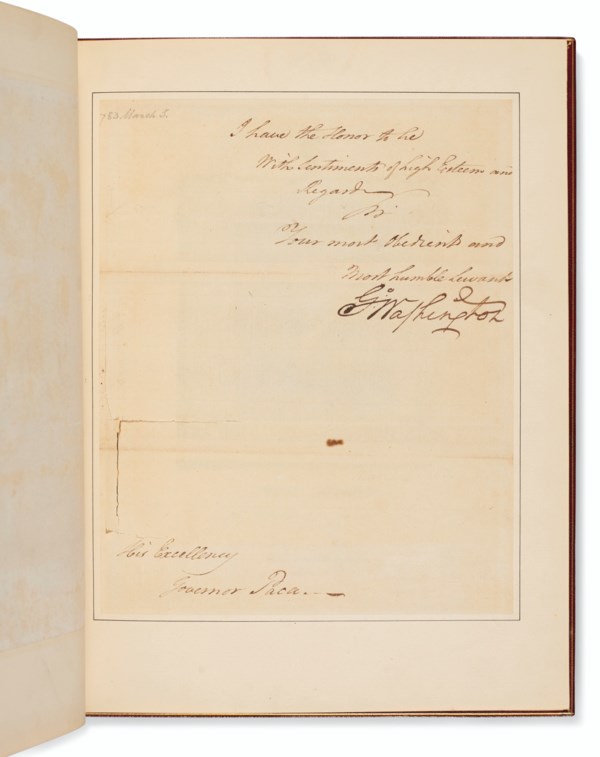 783 March 5.
I have the Honor to be
With Sentiments of high Esteem and
Regard
Sir
Your most Obedient and
Most humble Servant
Go Washington
His Excellency
Governor Paca